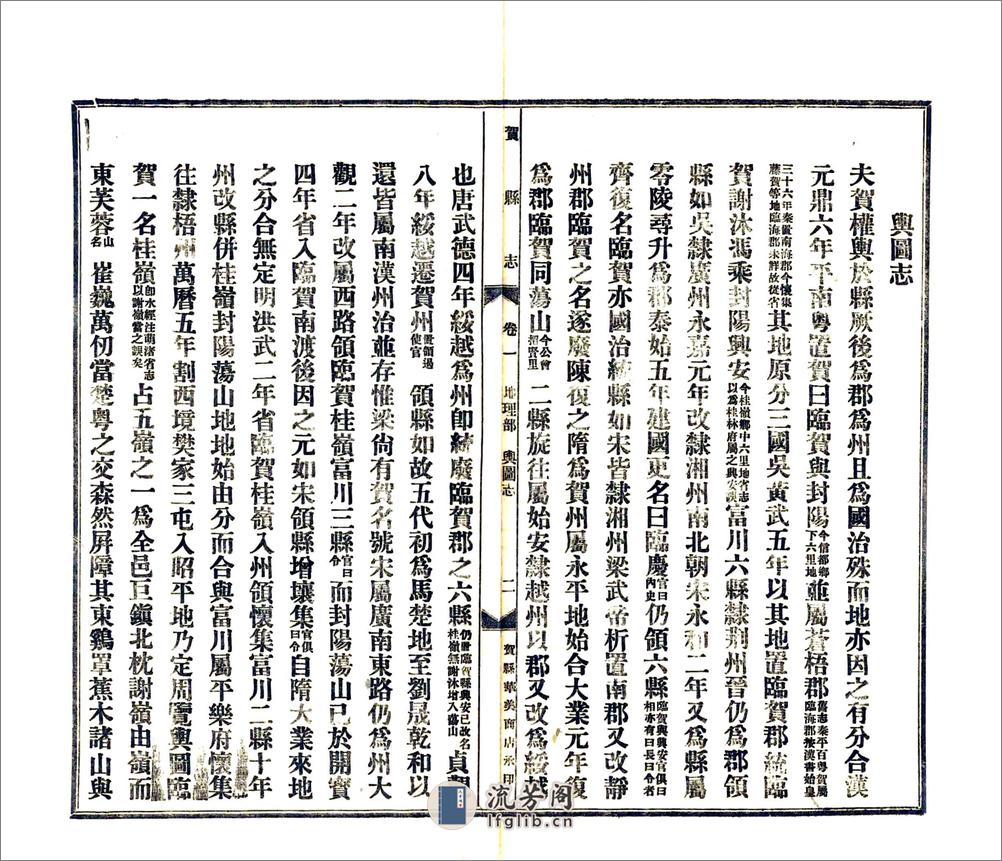 輿圖志
夫賀權輿於縣厥後為郡為州且為國治殊而地亦因之有分合漢
元鼎六年平南粵置賀曰臨賀與封陽今信都鄉下六里地並屬蒼梧郡舊志秦平百粵賀屬臨海郡按漢書始皇
三十六年秦置南海郡今懷集藤賀等地臨海郡未鮮故從省其地原分三國吳黃武五年以其地置臨賀郡統臨
賀謝沐馮乘封陽興安今桂嶺鄉中六里地省志以為桂林府屬之興安誤富川六縣隸荆州晉仍為郡領
縣如吳隸廣州永嘉元年改隸湘州南北朝宋永和二年又為縣屬
零陵尋升為郡泰始五年建國更名曰臨慶官曰內史仍領六縣臨賀興安官俱曰相亦有曰長曰令者
齊復名臨賀亦國治統縣如宋皆隸湘州梁武帝析置南郡又改靜
州郡臨賀之名遂廢陳復之隋為賀州屬永平地始合大業元年復
為郡臨賀同蕩山今公會招賢里二縣旋往屬始安隸越州以郡又改為綏越
賀縣志
卷一
地理部 輿圖志
二
賀縣華美商店承印
也唐武德四年綏越為州卽統廢臨賀郡之六縣仍置臨賀縣興安已改名桂嶺無謝沐增入蕩山貞觀
八年綏越還賀州置領過使官領縣如故五代初為馬楚地至劉晟乾和以
還皆屬南漢州治並存惟梁尙有賀名號宋屬廣南東路仍為州大
觀二年改屬西路領臨賀桂嶺富川三縣官曰令而封陽蕩山已於開寶
四年省入臨賀南渡後因之元如宋領縣增壤集官俱曰令自隋大業來地
之分合無定明洪武二年省臨賀桂嶺入州領懷集富川二縣十年
州改縣併桂嶺封陽蕩山地地始由分而合與富川屬平樂府懷集
往隸梧州萬曆五年割西境樊家三屯入昭平地乃定周覽輿圖臨
賀一名桂嶺卽水經注萌渚省志以謝嶺當之誤矣占五嶺之一為全邑巨鎭北枕謝嶺由嶺而
東芙蓉山名崔巍萬仞當楚粵之交森然屛障其東鷄罩蕉木諸山與
流芳阁
lfglib.cn